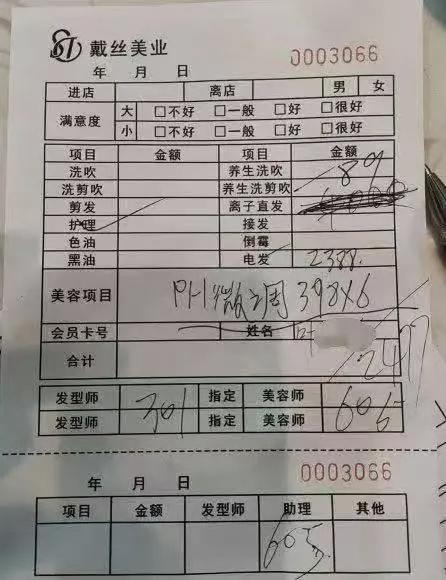 戴丝美业
0003066
年 月 日
进店 离店 男 女
满意度 大 □不好 □一般 □好 □很好
小 □不好 □一般 □好 □很好
项目 金额 项目 金额
洗吹 养生洗吹 89
洗剪吹 养生洗剪吹
剪发 离子直发
护理 接发
色油 倒霉
黑油 电发 2388.
美容项目 PH微调 398X6
会员卡号 姓名
合计 2477
发型师 301 指定 美容师 605
发型师 指定 美容师
0003066
年 月 日
项目 金额 发型师 助理 其他
605